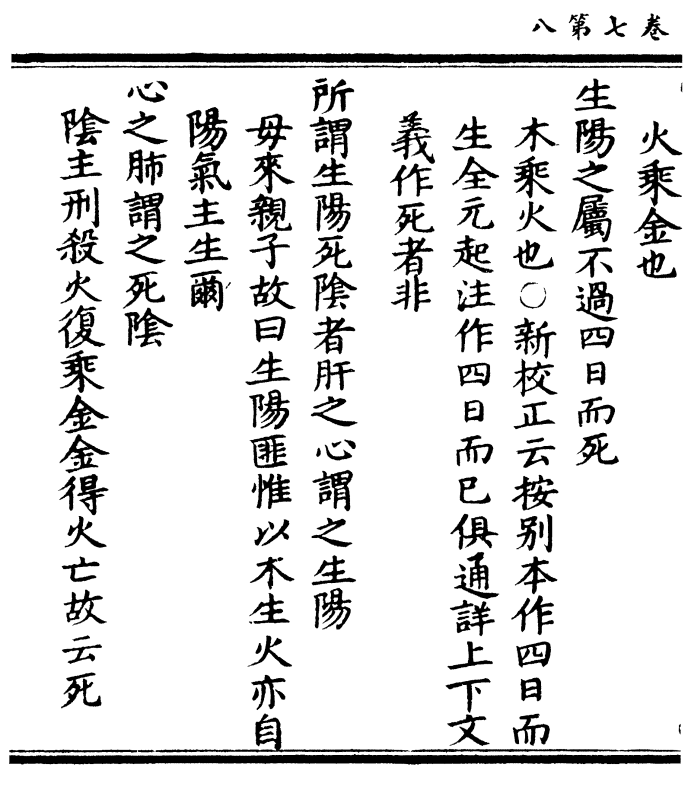 卷七第八
火乘金也
生陽之屬不過四日而死
木乘火也○新校正云按别本作四日而
生全元起注作四日而已俱通詳上下文
義作死者非
所謂生陽死陰者肝之心謂之生陽
母來親子故曰生陽匪惟以木生火亦自
陽氣主生爾
心之肺謂之死陰
陰主刑殺火復乘金金得火亡故云死